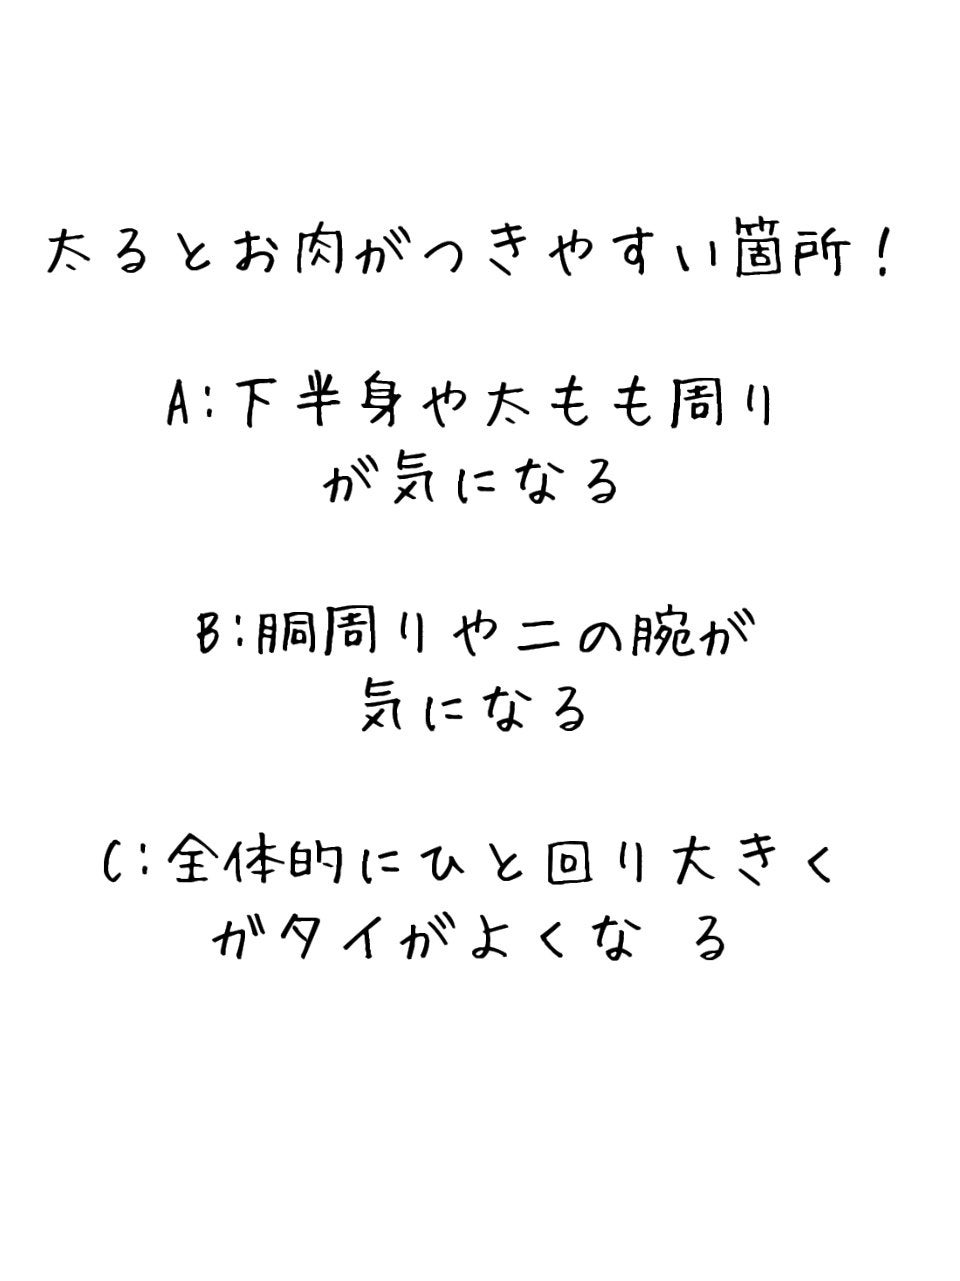 太るとお肉がつきやすい箇所！
A:下半身や太もも周り
が気になる
B:胴周りや二の腕が
気になる
C:全体的にひと回り大きく
ガタイがよくな る